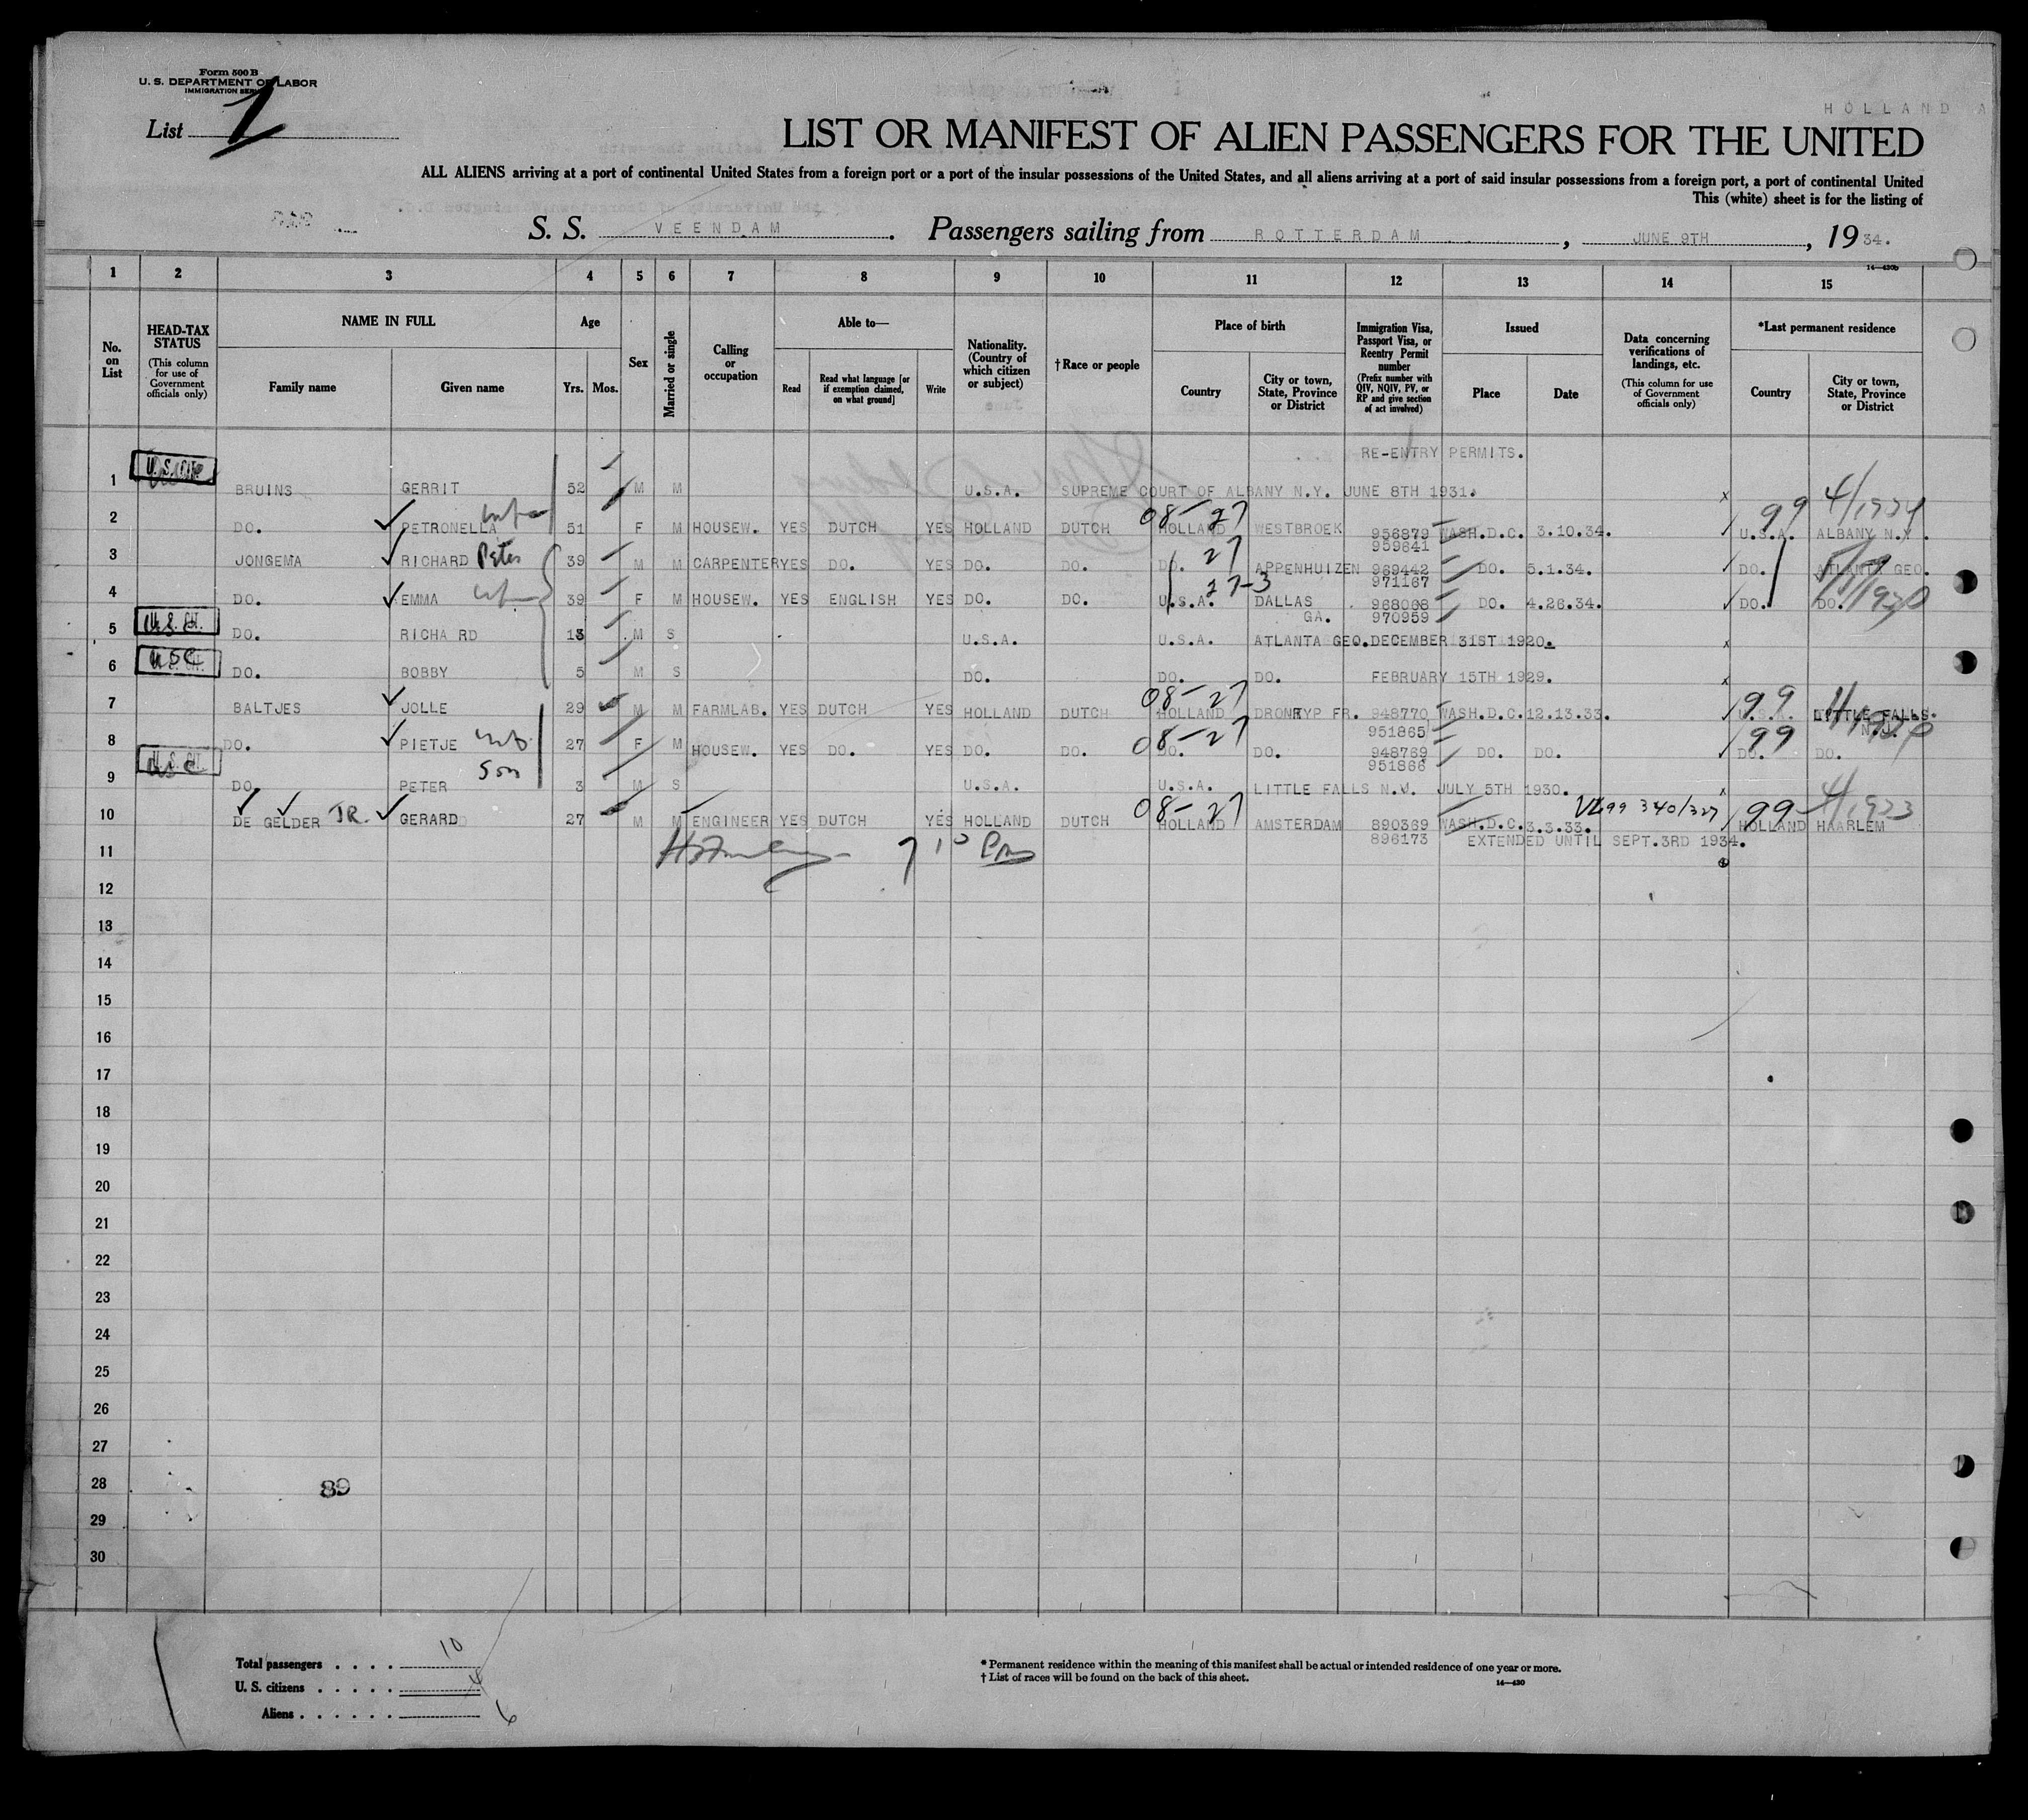 Form 500 B
U. S. DEPARTMENT OF LABOR
IMMIGRATION
List 1
HOLLAND A
LIST OR MANIFEST OF ALIEN PASSENGERS FOR THE UNITED
ALL ALIENS arriving at a port of continental United States from a foreign port or a port of the insular possessions of the United States, and all aliens arriving at a port of said insular possessions from a foreign port, a port of continental United
This (white) sheet is for the listing of
S. S. VEENDAM. Passengers sailing from ROTTERDAM, JUNE 9TH, 1934.
14—430b
1 2 3 4 5 6 7 8 9 10 11 12 13 14 15
No. on List
HEAD-TAX STATUS (This column for use of Government officials only)
NAME IN FULL Family name Given name
Age Yrs. Mos.
Sex
Married or single
Calling or occupation
Able to— Read Read what language [or if exemption claimed, on what ground] Write
Nationality. (Country of which citizen or subject)
†Race or people
Place of birth Country City or town, State, Province or District
Immigration Visa, Passport Visa, or Reentry Permit number (Prefix number with QIV, NQIV, PV, or RP and give section of act involved)
Issued Place Date
Data concerning verifications of landings, etc. (This column for use of Government officials only)
*Last permanent residence Country City or town, State, Province or District
RE-ENTRY PERMITS.
1 U.S. CIT. BRUINS GERRIT 52 M M U.S.A. SUPREME COURT OF ALBANY N.Y. JUNE 8TH 1931. x 4/1924
2 DO. PETRONELLA wife 51 F M HOUSEW. YES DUTCH YES HOLLAND DUTCH 08-27 HOLLAND WESTBROEK 956879 WASH.D.C. 3.10.34. 99 U.S.A. ALBANY N.Y.
959641
3 JONGEMA RICHARD Peter 39 M M CARPENTER YES DO. YES DO. DO. 27 DO. APPENHUIZEN 969442 DO. 5.1.34. DO. ATLANTA GEO.
971167
4 DO. EMMA wife 39 F M HOUSEW. YES ENGLISH YES DO. DO. 27-3 U.S.A. DALLAS 968068 DO. 4.26.34. DO. DO.
GA. 970959
5 U.S. CIT. DO. RICHARD 13 M S U.S.A. U.S.A. ATLANTA GEO. DECEMBER 31ST 1920. x
6 USC DO. BOBBY 5 M S DO. DO. DO. FEBRUARY 15TH 1929. x
7 BALTJES JOLLE 29 M M FARMLAB. YES DUTCH YES HOLLAND DUTCH 08-27 HOLLAND DRONRYP FR. 948770 WASH.D.C. 12.13.33. 99 U.S.A. LITTLE FALLS.
951865
8 DO. PIETJE wife 27 F M HOUSEW. YES DO. YES DO. DO. 08-27 DO. DO. 948769 DO. DO. 99 DO. DO.
951866
9 USC DO. PETER son 3 M S U.S.A. U.S.A. LITTLE FALLS N.J. JULY 5TH 1930. x
10 DE GELDER JR. GERARD 27 M M ENGINEER YES DUTCH YES HOLLAND DUTCH 08-27 HOLLAND AMSTERDAM 890369 WASH.D.C. 3.3.33. 99 HOLLAND HAARLEM 4/1923
896173 EXTENDED UNTIL SEPT.3RD 1934.
11
12
13
14
15
16
17
18
19
20
21
22
23
24
25
26
27
28
29
30
89
Total passengers 10
U. S. citizens 4
Aliens 6
* Permanent residence within the meaning of this manifest shall be actual or intended residence of one year or more.
† List of races will be found on the back of this sheet.
14—430